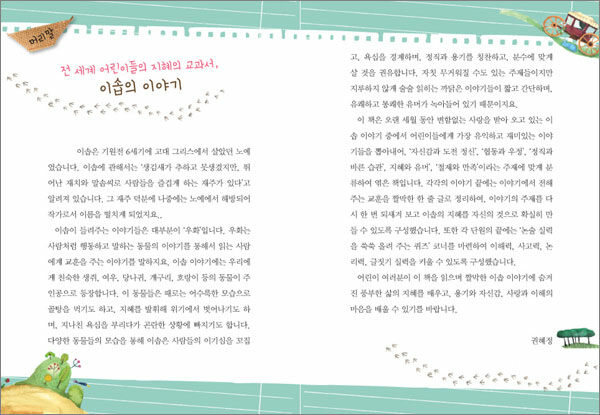 머리말
전 세계 어린이들의 지혜의 교과서,
이솝의 이야기
이솝은 기원전 6세기에 고대 그리스에서 살았던 노예
였습니다. 이솝에 관해서는 '생김새가 추하고 못생겼지만, 뛰
어난 재치와 말솜씨로 사람들을 즐겁게 하는 재주가 있다'고
알려져 있습니다. 그 재주 덕분에 나중에는 노예에서 해방되어
작가로서 이름을 떨치게 되었지요..
이솝이 들려주는 이야기들은 대부분이 '우화'입니다. 우화는
사람처럼 행동하고 말하는 동물의 이야기를 통해서 읽는 사람
에게 교훈을 주는 이야기를 말하지요. 이솝 이야기에는 우리에
게 친숙한 생쥐, 여우, 당나귀, 개구리, 호랑이 등의 동물이 주
인공으로 등장합니다. 이 동물들은 때로는 어수룩한 모습으로
골탕을 먹기도 하고, 지혜를 발휘해 위기에서 벗어나기도 하
며, 지나친 욕심을 부리다가 곤란한 상황에 빠지기도 합니다.
다양한 동물들의 모습을 통해 이솝은 사람들의 이기심을 꼬집
고, 욕심을 경계하며, 정직과 용기를 칭찬하고, 분수에 맞게
살 것을 권유합니다. 자칫 무거워질 수도 있는 주제들이지만
지루하지 않게 술술 읽히는 까닭은 이야기들이 짧고 간단하며,
유쾌하고 통쾌한 유머가 녹아들어 있기 때문이지요.
이 책은 오랜 세월 동안 변함없는 사랑을 받아 오고 있는 이
솝 이야기 중에서 어린이들에게 가장 유익하고 재미있는 이야
기들을 뽑아내어, '자신감과 도전 정신', '협동과 우정', '정직과
바른 습관', '지혜와 유머', '절제와 만족'이라는 주제에 맞게 분
류하여 엮은 책입니다. 각각의 이야기 끝에는 이야기에서 전해
주는 교훈을 짤막한 한 줄 글로 정리하여, 이야기의 주제를 다
시 한 번 되새겨 보고 이솝의 지혜를 자신의 것으로 확실히 만
들 수 있도록 구성했습니다. 또한 각 단원의 끝에는 '논술 실력
을 쑥쑥 올려 주는 퀴즈' 코너를 마련하여 이해력, 사고력, 논
리력, 글짓기 실력을 키울 수 있도록 구성했습니다.
어린이 여러분이 이 책을 읽으며 짤막한 이솝 이야기에 숨겨
진 풍부한 삶의 지혜를 배우고, 용기와 자신감, 사랑과 이해의
마음을 배울 수 있기를 바랍니다.
권혜정